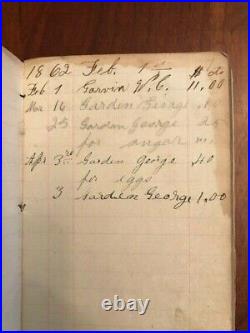 1862 Feb. 1st $ cts
Feb 1 Garvin W. C. 11.00
Mar 16 Garden George
25 Gardom George 25
for sugar
Apr 3rd Garden George 40
for eggs
3 Gardiem George 1.00